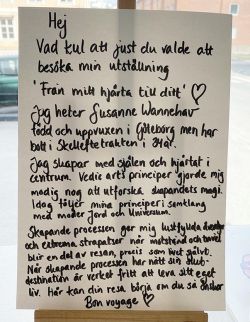 Hej
Vad kul att just du valde att
besöka min utställning
'Från mitt hjärta till ditt' ♡
Jag heter Susanne Wannehav
född och uppvuxen i Göteborg men har
bott i Skelleftetrakten i 34år.
Jag skapar med själen och hjärtat i
centrum. Vedic arts principer gjorde mig
modig nog att utforska skapandets magi.
Idag följer mina principer i samklang
med moder Jord och Universum.
Skapande processen ger mig lustfyllda äventyr
och extrema strapatser när motstånd och tvivel
blir en del av resan, precis som livet självt.
När skapande processen har nått sin slut-
destination är verket fritt att leva sitt eget
liv. Här kan din resa börja om du så önskar
Bon voyage ♡